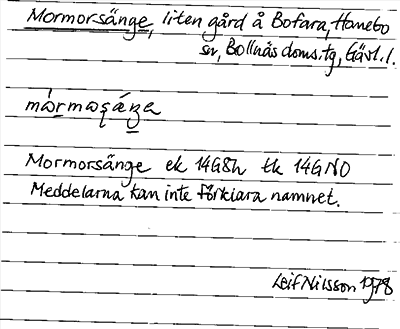 Mormorsänge, liten gård å Bofara, Hanebo
sn, Bollnäs doms.tg, Gävl. l.
mòrmoʂä́ŋa
Mormorsänge ek 14G8h tk 14GNO
Meddelarna kan inte förklara namnet.
Leif Nilsson 1978